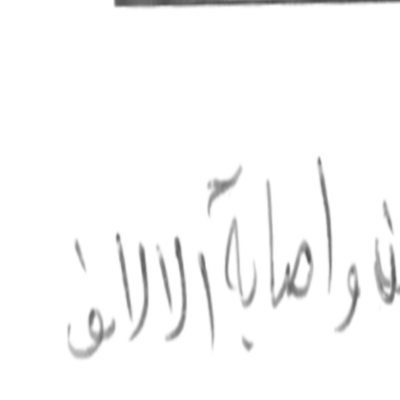 وإصابة الآلاف